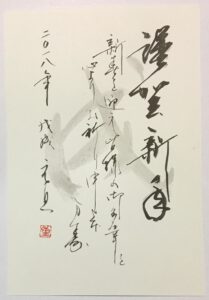 謹賀新年
新春を迎え皆様の御多幸を
心よりお祈り申し上げます
二〇一八年 戊戌 元旦